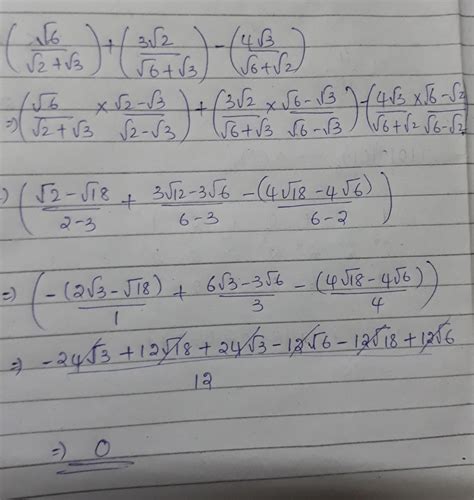 (√6/(√2+√3)) + (3√2/(√6+√3)) - (4√3/(√6+√2))
⇒ (√6/(√2+√3) × (√2-√3)/(√2-√3)) + (3√2/(√6+√3) × (√6-√3)/(√6-√3)) - (4√3/(√6+√2) × (√6-√2)/(√6-√2))
⇒ ((√2-√18)/(2-3) + (3√12-3√6)/(6-3) - (4√18-4√6)/(6-2))
⇒ (-(2√3-√18)/1 + (6√3-3√6)/3 - (4√18-4√6)/4)
⇒ (-24√3+12√18+24√3-12√6-12√18+12√6)/12
⇒ 0